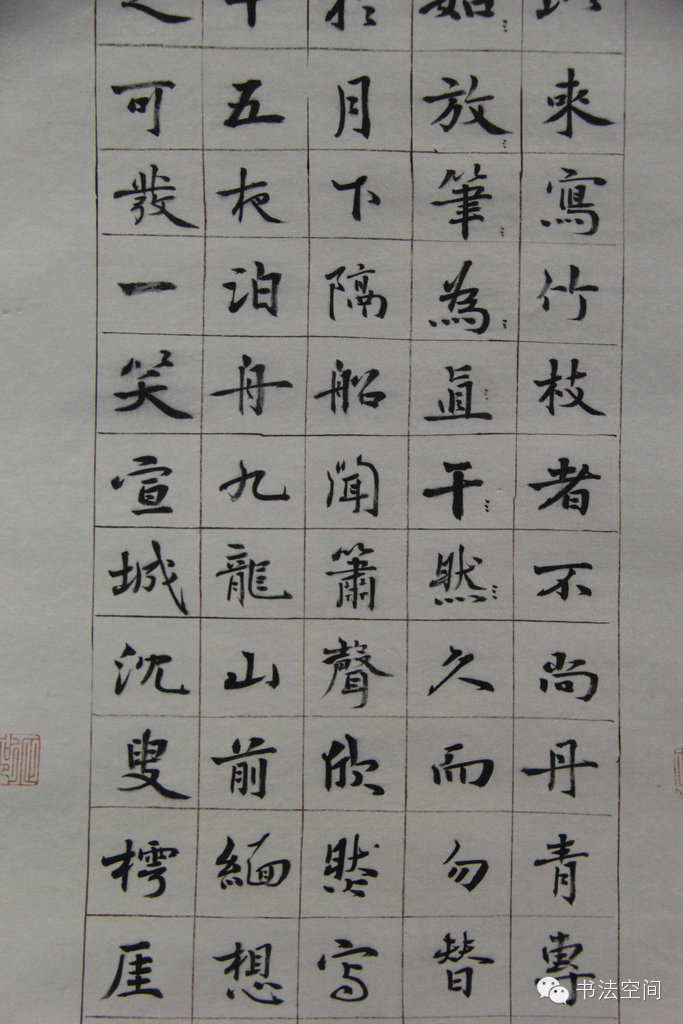 來寫竹枝者不尚丹青專
如放筆為直干然久而勿替
於月下隔船聞簫聲欣然寫
十五夜泊舟九龍山前緬想
之可發一笑宣城沈叟樗厓
书法空间